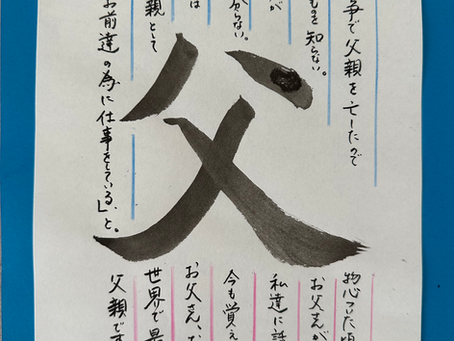 争で父親を亡したので
ものを知らない。
が
分らない。
は
親として
お前達の為に仕事をしている」と。
父
物心つた頃
お父さんが
私達に話
今も覚え
お父さん、
世界で最
父親です